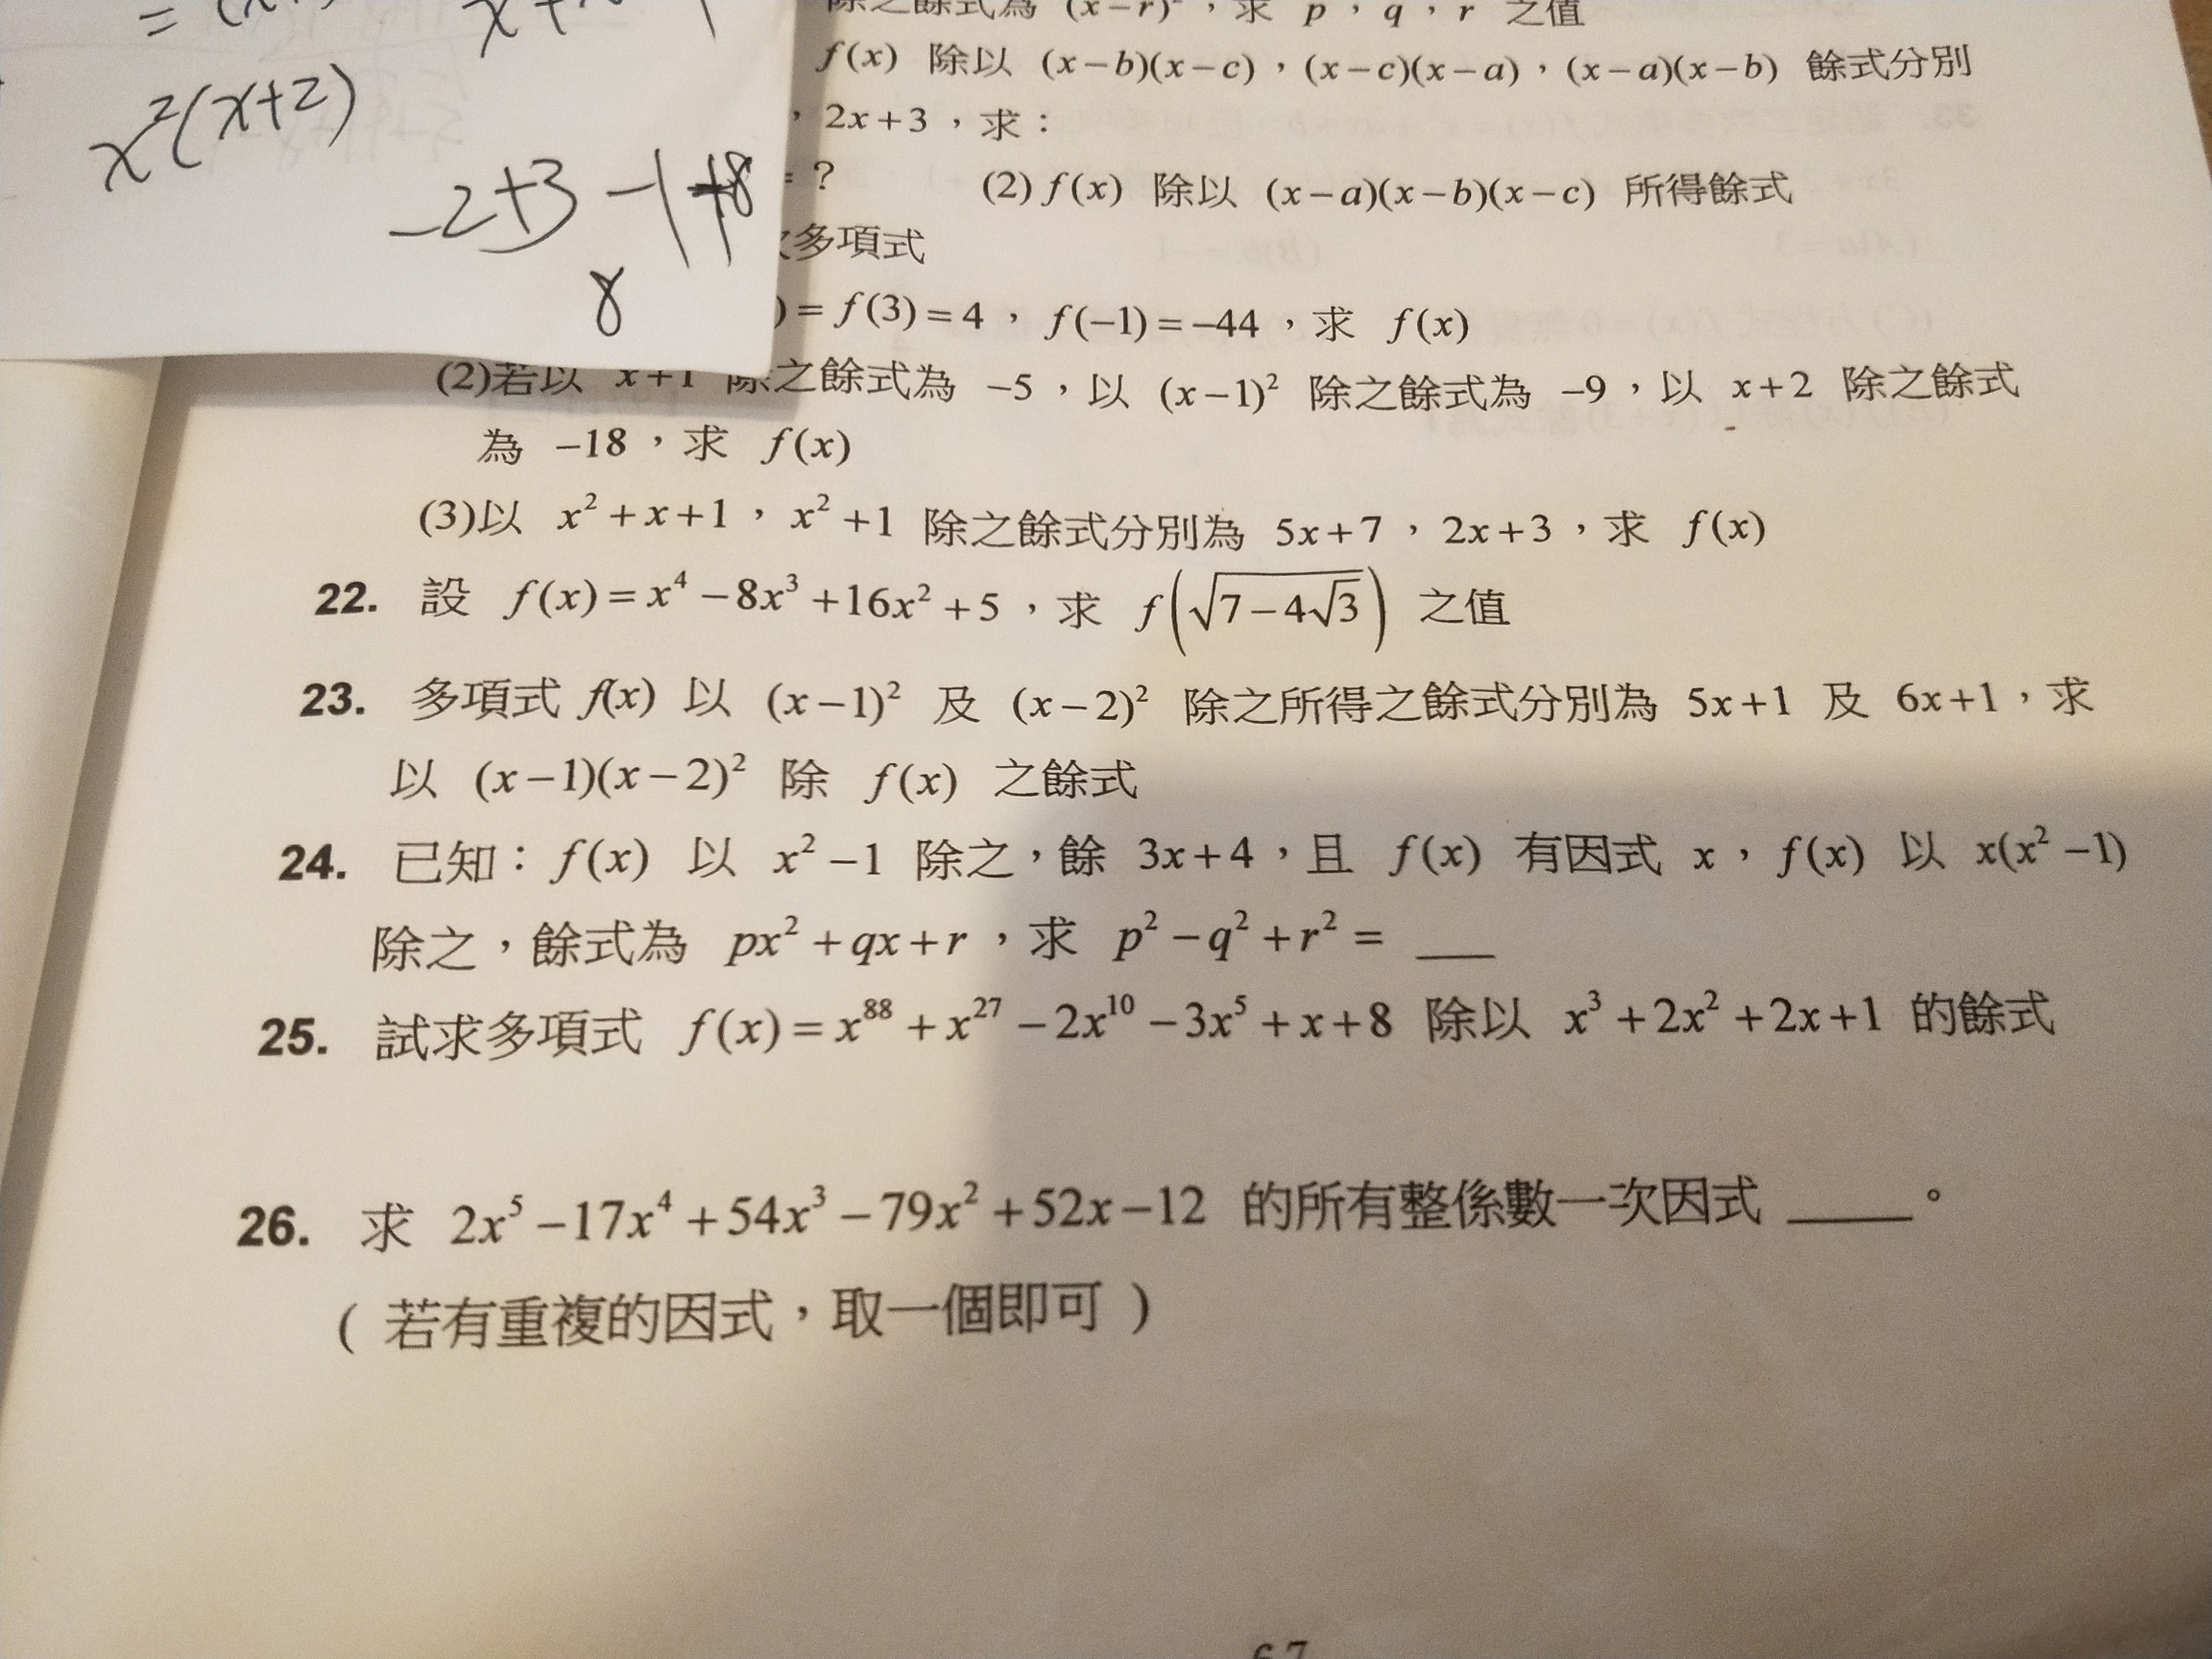 x²(x+2)
-2+3-1+8
8
除之餘式為 (x-r)²,求 p,q,r 之值
f(x) 除以 (x-b)(x-c),(x-c)(x-a),(x-a)(x-b) 餘式分別
,2x+3,求:
= ? (2) f(x) 除以 (x-a)(x-b)(x-c) 所得餘式
多項式
) = f(3) = 4,f(-1) = -44,求 f(x)
(2)若以 x+1 除之餘式為 -5,以 (x-1)² 除之餘式為 -9,以 x+2 除之餘式
為 -18,求 f(x)
(3)以 x²+x+1,x²+1 除之餘式分別為 5x+7,2x+3,求 f(x)
22. 設 f(x) = x⁴-8x³+16x²+5,求 f(√(7-4√3)) 之值
23. 多項式 f(x) 以 (x-1)² 及 (x-2)² 除之所得之餘式分別為 5x+1 及 6x+1,求
以 (x-1)(x-2)² 除 f(x) 之餘式
24. 已知:f(x) 以 x²-1 除之,餘 3x+4,且 f(x) 有因式 x,f(x) 以 x(x²-1)
除之,餘式為 px²+qx+r,求 p²-q²+r² = ___
25. 試求多項式 f(x) = x⁸⁸+x²⁷-2x¹⁰-3x⁵+x+8 除以 x³+2x²+2x+1 的餘式
26. 求 2x⁵-17x⁴+54x³-79x²+52x-12 的所有整係數一次因式 ____。
(若有重複的因式,取一個即可)
67